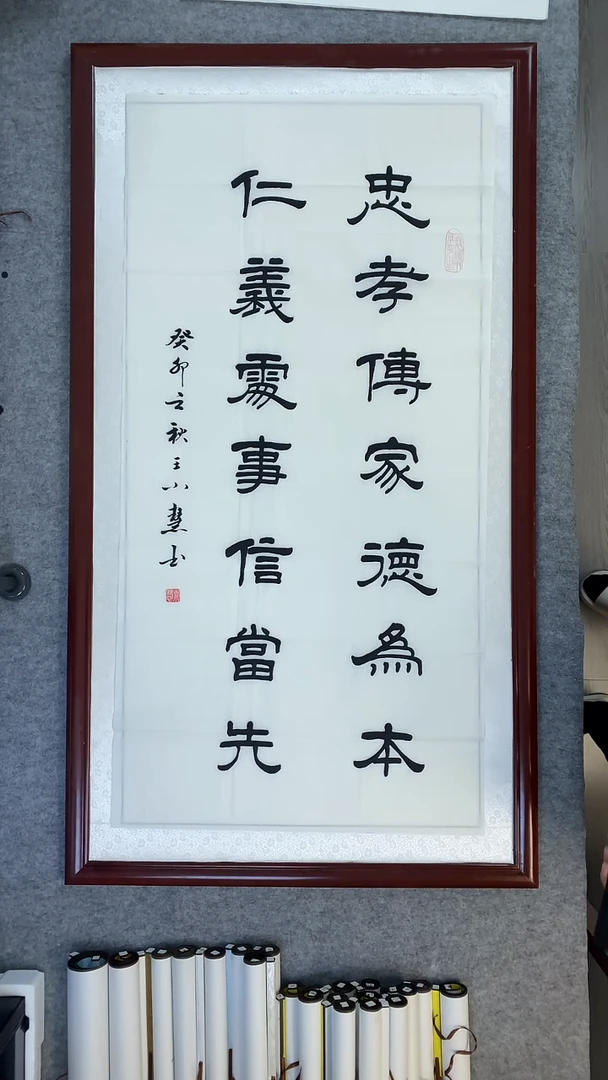 忠孝傳家德為本
仁義處事信當先
癸卯立秋王小慧书